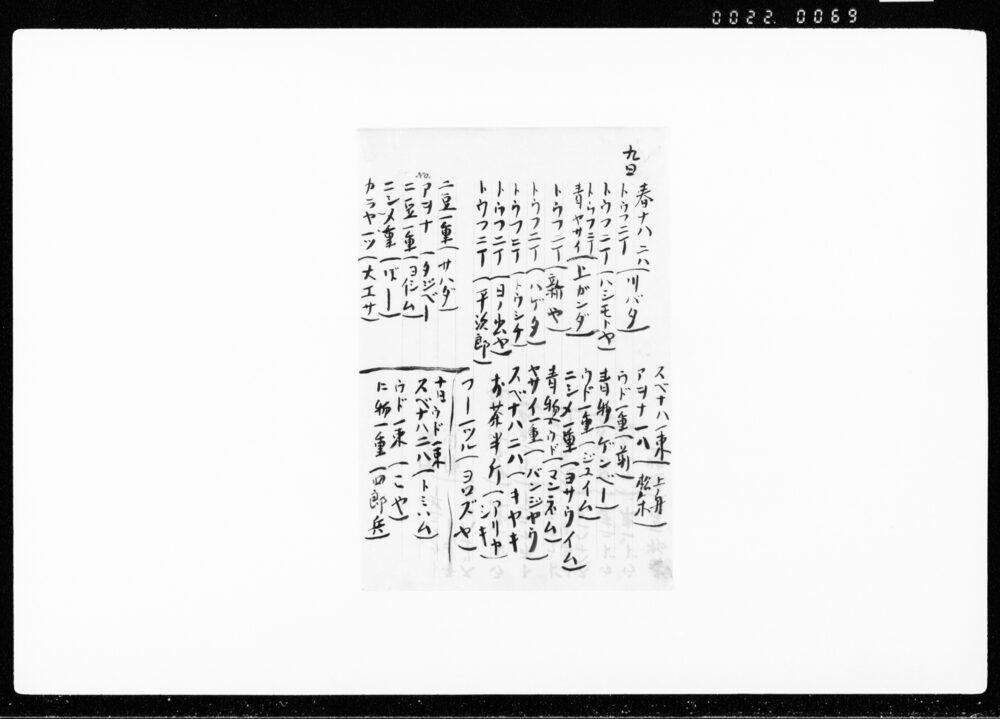 0022 0069
九日
春ナハ 二ハ(川バタ)
トウフ二丁(ハシモトヤ)
トウフ二丁
青ヤサイ(上ガンダ)
トウフ二丁(新や)
トウフ二丁(ハゲタ)
トウフ二丁(トウシチ)
トウフ二丁(日ノ出ヤ)
トウフ二丁(平次郎)
二豆一重(サハダ)
No.
アヲナ(タジベー
二豆一重(ヨイシム)
ニシメ一重(ばー)
カラヤ一ツ(大エサ)
スベナハ一束
アヲナ一ハ
ウド一重(前)
青物(ゲンベー)
ウド一重(ジユイム)
ニシメ一重(ヨサウイム)
青物ウド(マンネム)
ヤサイ一重(バンジヤウ)
スベナハ二ハ(キヤキ
お茶半斤(アリヤシキ)
フー一ツル(ヨロズヤ)
十日ウド一束
スベナハ二ハ(トミハム)
ウド一束(こや)
に物一重(四郎兵)